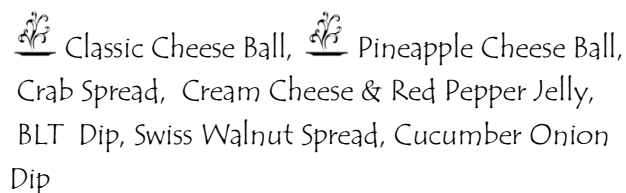 Classic Cheese Ball, Pineapple Cheese Ball,
Crab Spread, Cream Cheese & Red Pepper Jelly,
BLT Dip, Swiss Walnut Spread, Cucumber Onion
Dip